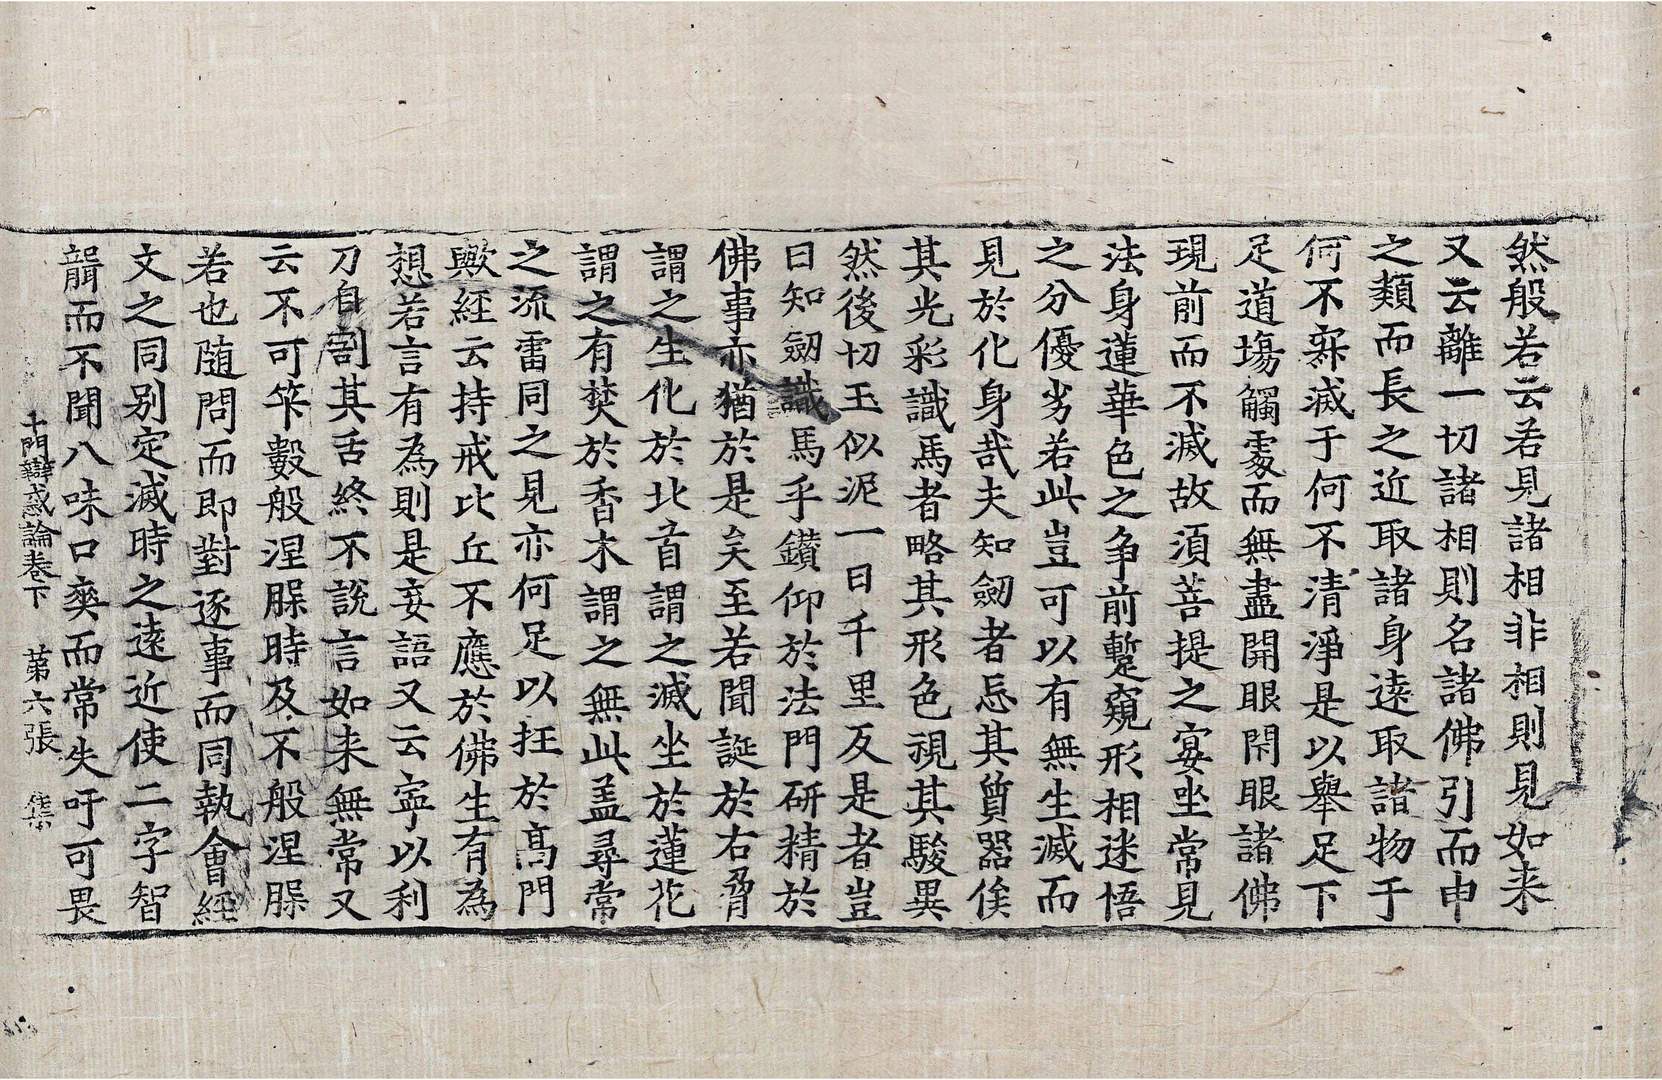 然般若云若見諸相非相則見如来
又云離一切諸相則名諸佛引而申
之類而長之近取諸身逺取諸物于
何不寂滅于何不清淨是以舉足下
足道場觸處而無盡開眼閇眼諸佛
現前而不滅故須菩提之宴坐常見
法身蓮華色之争前蹔窺形相迷悟
之分優劣若此豈可以有無生滅而
見於化身㦲夫知劒者忘其質器俟
其光彩識馬者略其形色視其駿異
然後切玉似泥一日千里反是者豈
曰知劒識馬乎鑚仰於法門研精於
佛事亦猶於是矣至若聞誕於右脅
謂之生化於北首謂之滅坐於蓮花
謂之有焚於香木謂之無此盖尋常
之流雷同之見亦何足以抂於髙門
歟経云持戒比丘不應於佛生有為
想若言有為則是妄語又云寧以利
刀自割其舌終不說言如来無常又
云不可筭數般涅槃時及不般涅槃
若也随問而即對逐事而同執會経
文之同別定滅時之逺近使二字智
而不聞八味口爽而常失吁可畏
十門辯惑論卷下 第六張